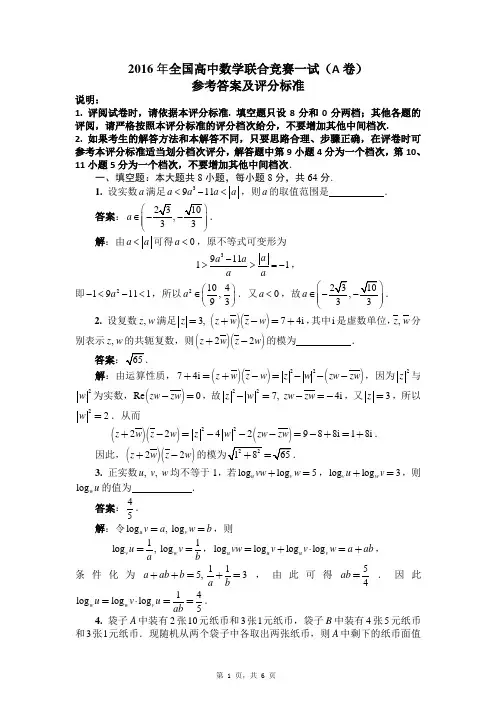 2016 年全国高中数学联合竞赛一试（A 卷）
参考答案及评分标准
说明：
1. 评阅试卷时，请依据本评分标准. 填空题只设 8 分和 0 分两档；其他各题的
评阅，请严格按照本评分标准的评分档次给分，不要增加其他中间档次.
2. 如果考生的解答方法和本解答不同，只要思路合理、步骤正确，在评卷时可
参考本评分标准适当划分档次评分，解答题中第 9 小题 4 分为一个档次，第 10、
11 小题 5 分为一个档次，不要增加其他中间档次.
一、填空题：本大题共 8 小题，每小题 8 分，共 64 分.
1. 设实数 a 满足 a < 9a³ − 11a < |a|，则 a 的取值范围是 ________ .
答案：a ∈ (−2√3/3, −√10/3).
解：由 a < |a| 可得 a < 0，原不等式可变形为
1 > (9a³ − 11a)/a > |a|/a = −1，
即 −1 < 9a² − 11 < 1，所以 a² ∈ (10/9, 4/3). 又 a < 0，故 a ∈ (−2√3/3, −√10/3).
2. 设复数 z, w 满足 |z| = 3, (z + w̄)(z̄ − w) = 7 + 4i，其中 i 是虚数单位，z̄, w̄ 分
别表示 z, w 的共轭复数，则 (z + 2w̄)(z̄ − 2w) 的模为 ________ .
答案：√65.
解：由运算性质，7 + 4i = (z + w̄)(z̄ − w) = |z|² − |w|² − (zw − z̄w̄)，因为 |z|² 与
|w|² 为实数，Re(zw − z̄w̄) = 0，故 |z|² − |w|² = 7, zw − z̄w̄ = −4i，又 |z| = 3，所以
|w|² = 2. 从而
(z + 2w̄)(z̄ − 2w) = |z|² − 4|w|² − 2(zw − z̄w̄) = 9 − 8 + 8i = 1 + 8i.
因此，(z + 2w̄)(z̄ − 2w) 的模为 √(1² + 8²) = √65.
3. 正实数 u, v, w 均不等于 1，若 logᵤ vw + logᵥ w = 5，logᵥ u + log_w v = 3，则
log_w u 的值为 ________ .
答案：4/5.
解：令 logᵤ v = a, logᵥ w = b，则
logᵥ u = 1/a, log_w v = 1/b，logᵤ vw = logᵤ v + logᵤ v · logᵥ w = a + ab，
条件化为 a + ab + b = 5, 1/a + 1/b = 3 ，由此可得 ab = 5/4 . 因此
log_w u = log_w v · logᵥ u = 1/ab = 4/5.
4. 袋子 A 中装有 2 张 10 元纸币和 3 张 1 元纸币，袋子 B 中装有 4 张 5 元纸币
和 3 张 1 元纸币. 现随机从两个袋子中各取出两张纸币，则 A 中剩下的纸币面值
第 1 页，共 6 页